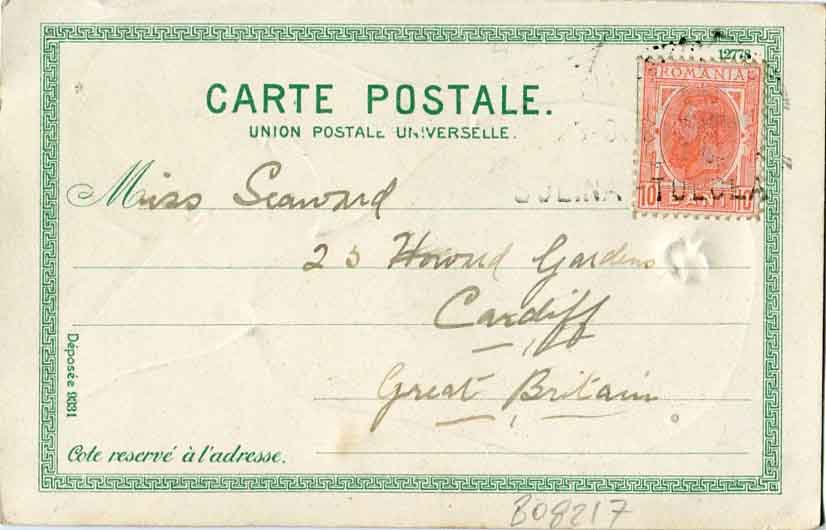 12778
ROMANIA
CARTE POSTALE.
UNION POSTALE UNIVERSELLE.
Miss Seaward
SULINA TULCEA
10 10
23 Howard Gardens
Cardiff
Great Britain
Déposée 9381
Cote reservé à l'adresse.
B08217